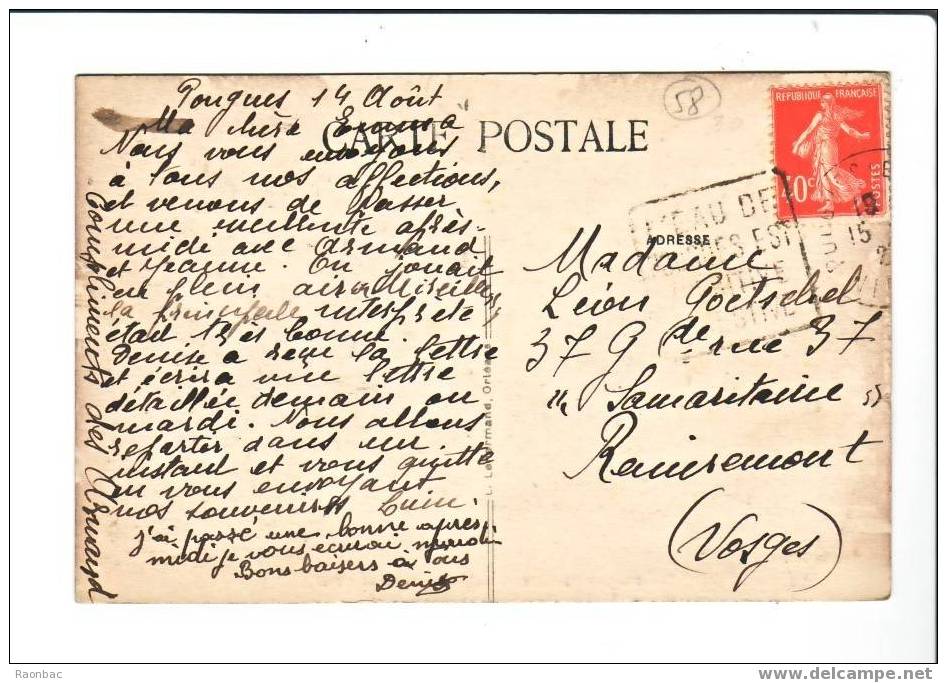 58
Pougues 14 Août
Ma chère Emma
Nous vous envoyons
à tous nos affections,
et venons de passer
une excellente après-
midi avec Armand
et Jeanne. On jouait
en plein air Mireille
la principale interprète
était très bonne.
Denise a reçu la lettre
et écrira une lettre
détaillée demain ou
mardi. Nous allons
repartir dans un
instant et vous quitte
en vous envoyant
nos souvenirs
j'ai passé une bonne après
midi je vous écrirai
Bons baisers à tous
Denise
Compliments des Armand
CARTE POSTALE
L. Lenormand, Orléans
REPUBLIQUE FRANÇAISE
POSTES
L'EAU DE
EST
ADRESSE
15
Madame
Léon Goetschel
37 Gde rue 37
"Samaritaine"
Remiremont
(Vosges)
Raonbac
www.delcampe.net